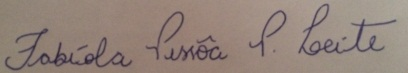 Fabíola Pessôa P. Leite